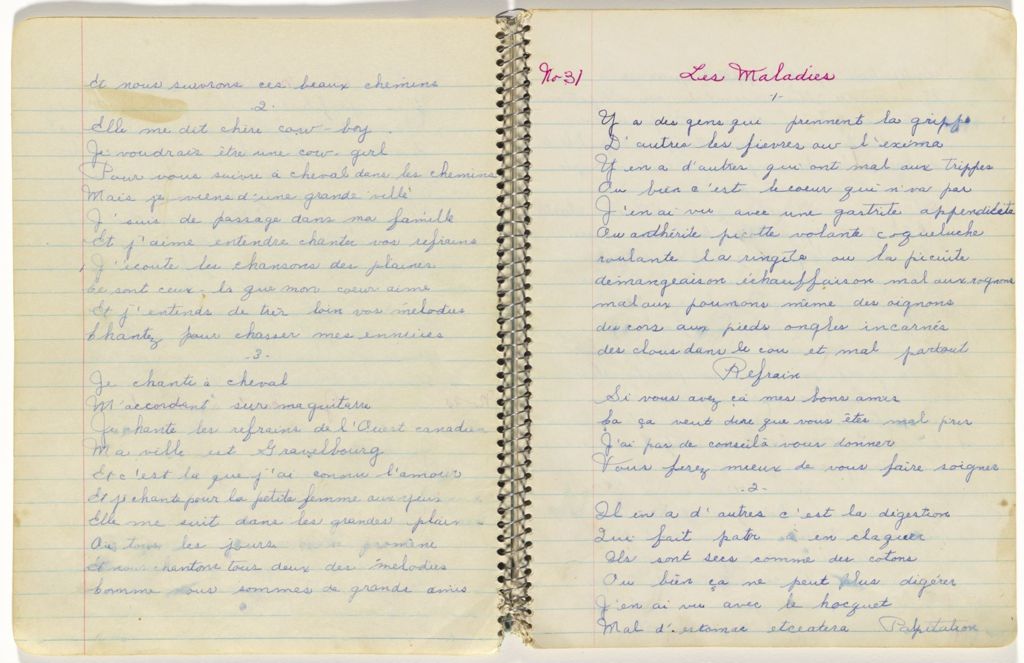 Et nous suivrons ces beaux chemins
.2.
Elle me dit chère cow-boy.
Je voudrais être une cow-girl
Pour vous suivre à cheval dans les chemins
Mais je viens d'une grande ville
J'suis de passage dans ma famille
Et j'aime entendre chanter vos refrains
J'écoute les chansons des plaines
Ce sont ceux-la que mon coeur aime
Et j'entends de très loin vos mélodies
Chantez pour chasser mes enneiees
.3.
Je chante à cheval
M'accordant sur ma guitare
Je chante les refrains de l'Ouest canadien
Ma ville est Gravelbourg
Et c'est la que j'ai connu l'amour
Et je chante pour la petite femme aux yeux
Elle me suit dans les grandes plain
Ou tous les jours on se promène
Et nous chantons tous deux des mélodies
Comme nous sommes de grands amis
No 31 Les Maladies
-1-
Y a des gens qui prennent la grippe
D'autres les fievres ouv l'exéma
Y en a d'autres qui ont mal aux trippes
Ou bien c'est le coeur qui n'va pas
J'en ai vu avec une gastrite appendicite
Ou anthérite picotte volante coqueluche
roulante la ringite ou la picinite
démangeaison échauffaison mal aux rognons
mal aux poumons même des oignons
des cors aux pieds ongles incarnés
des clous dans le cou et mal partout
Refrain
Si vous avez ça mes bons amis
Ca ça veut dire que vous êtes mal pris
J'ai pas de conseil à vous donner
Vous ferez mieux de vous faire soigner
.2.
Il en a d'autres c'est la digestion
Qui fait patir à en claquer
Ils sont secs comme des cotons
Ou bien ça ne peut plus digérer
J'en ai vu avec le hocquet
Mal d'estomac etceatera Palpitation